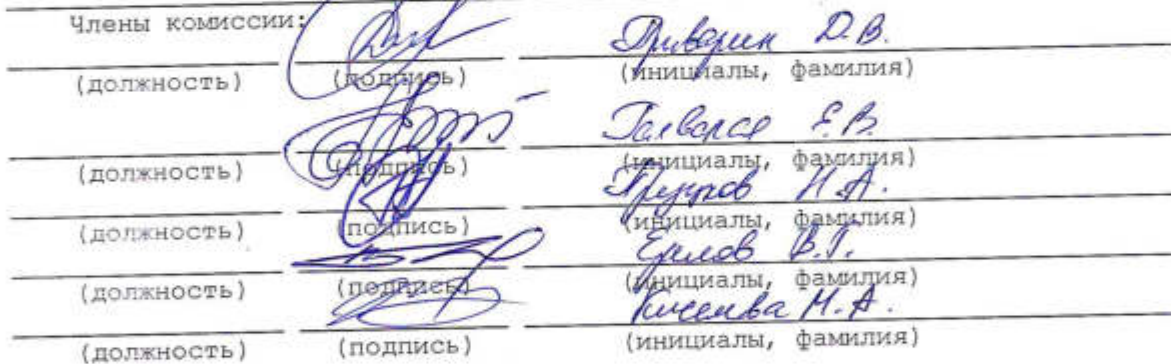 Члены комиссии:
Д.В.
(должность) (подпись) (инициалы, фамилия)
Е.В.
(должность) (подпись) (инициалы, фамилия)
Н.А.
(должность) (подпись) (инициалы, фамилия)
В.Г.
(должность) (подпись) (инициалы, фамилия)
М.А.
(должность) (подпись) (инициалы, фамилия)